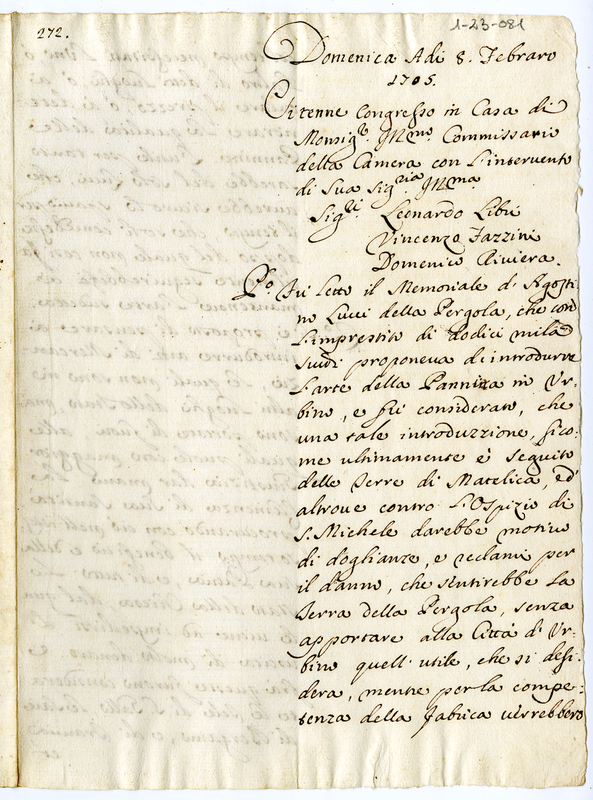 272.
1-23-081
Domenica Adi 8. Febraro
1705.
Si tenne Congresso in Casa di
Monsig.r Ill.mo Commissario
della Camera con l'intervento
di Sua Sig.ria Ill.ma
Sig.ri Leonardo Libri
Vincenzo Fazzini
Domenico Riviera.
P.o Fu letto il Memoriale d'Agosti
no Lucci della Pergola, che con
l'imprestito di dodici mila
scudi proponeva d'introdurre
l'arte della Pannina in Ur-
bino, e fù considerato, che
una tale introduzzione, sico:
me ultimamente è seguito
delle Terre di Matelica, ed'
altrove contro l'Ospizio di
S. Michele darebbe motivo
di doglianze, e reclami per
il danno, che sentirebbe la
Terra della Pergola, senza
apportare alla Città di Ur-
bino quell'utile, che si desi-
dera, mentre per la compe-
tenza della fabrica verrebbero